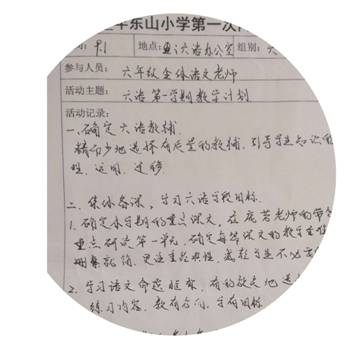 东山小学第一次
9.1 地点：重立六语办公室 组别：六
参与人员： 六年级全体语文老师
活动主题： 六语第一学期教学计划
活动记录：
一、确定六语教辅。
精而少地选择有质量的教辅，引导学生知识的
型、运用、迁移
二、集体备课，学习六语学段目标
1. 确定本学期的重点课文，在庞芳老师的带
重点研读第一单元，确定每篇课文的教学重难
册繁就简，更注重阶梯性，减轻学生不必要
2. 学习语文命题框架，有的放矢地进
练习内容，教有方向，学有目标